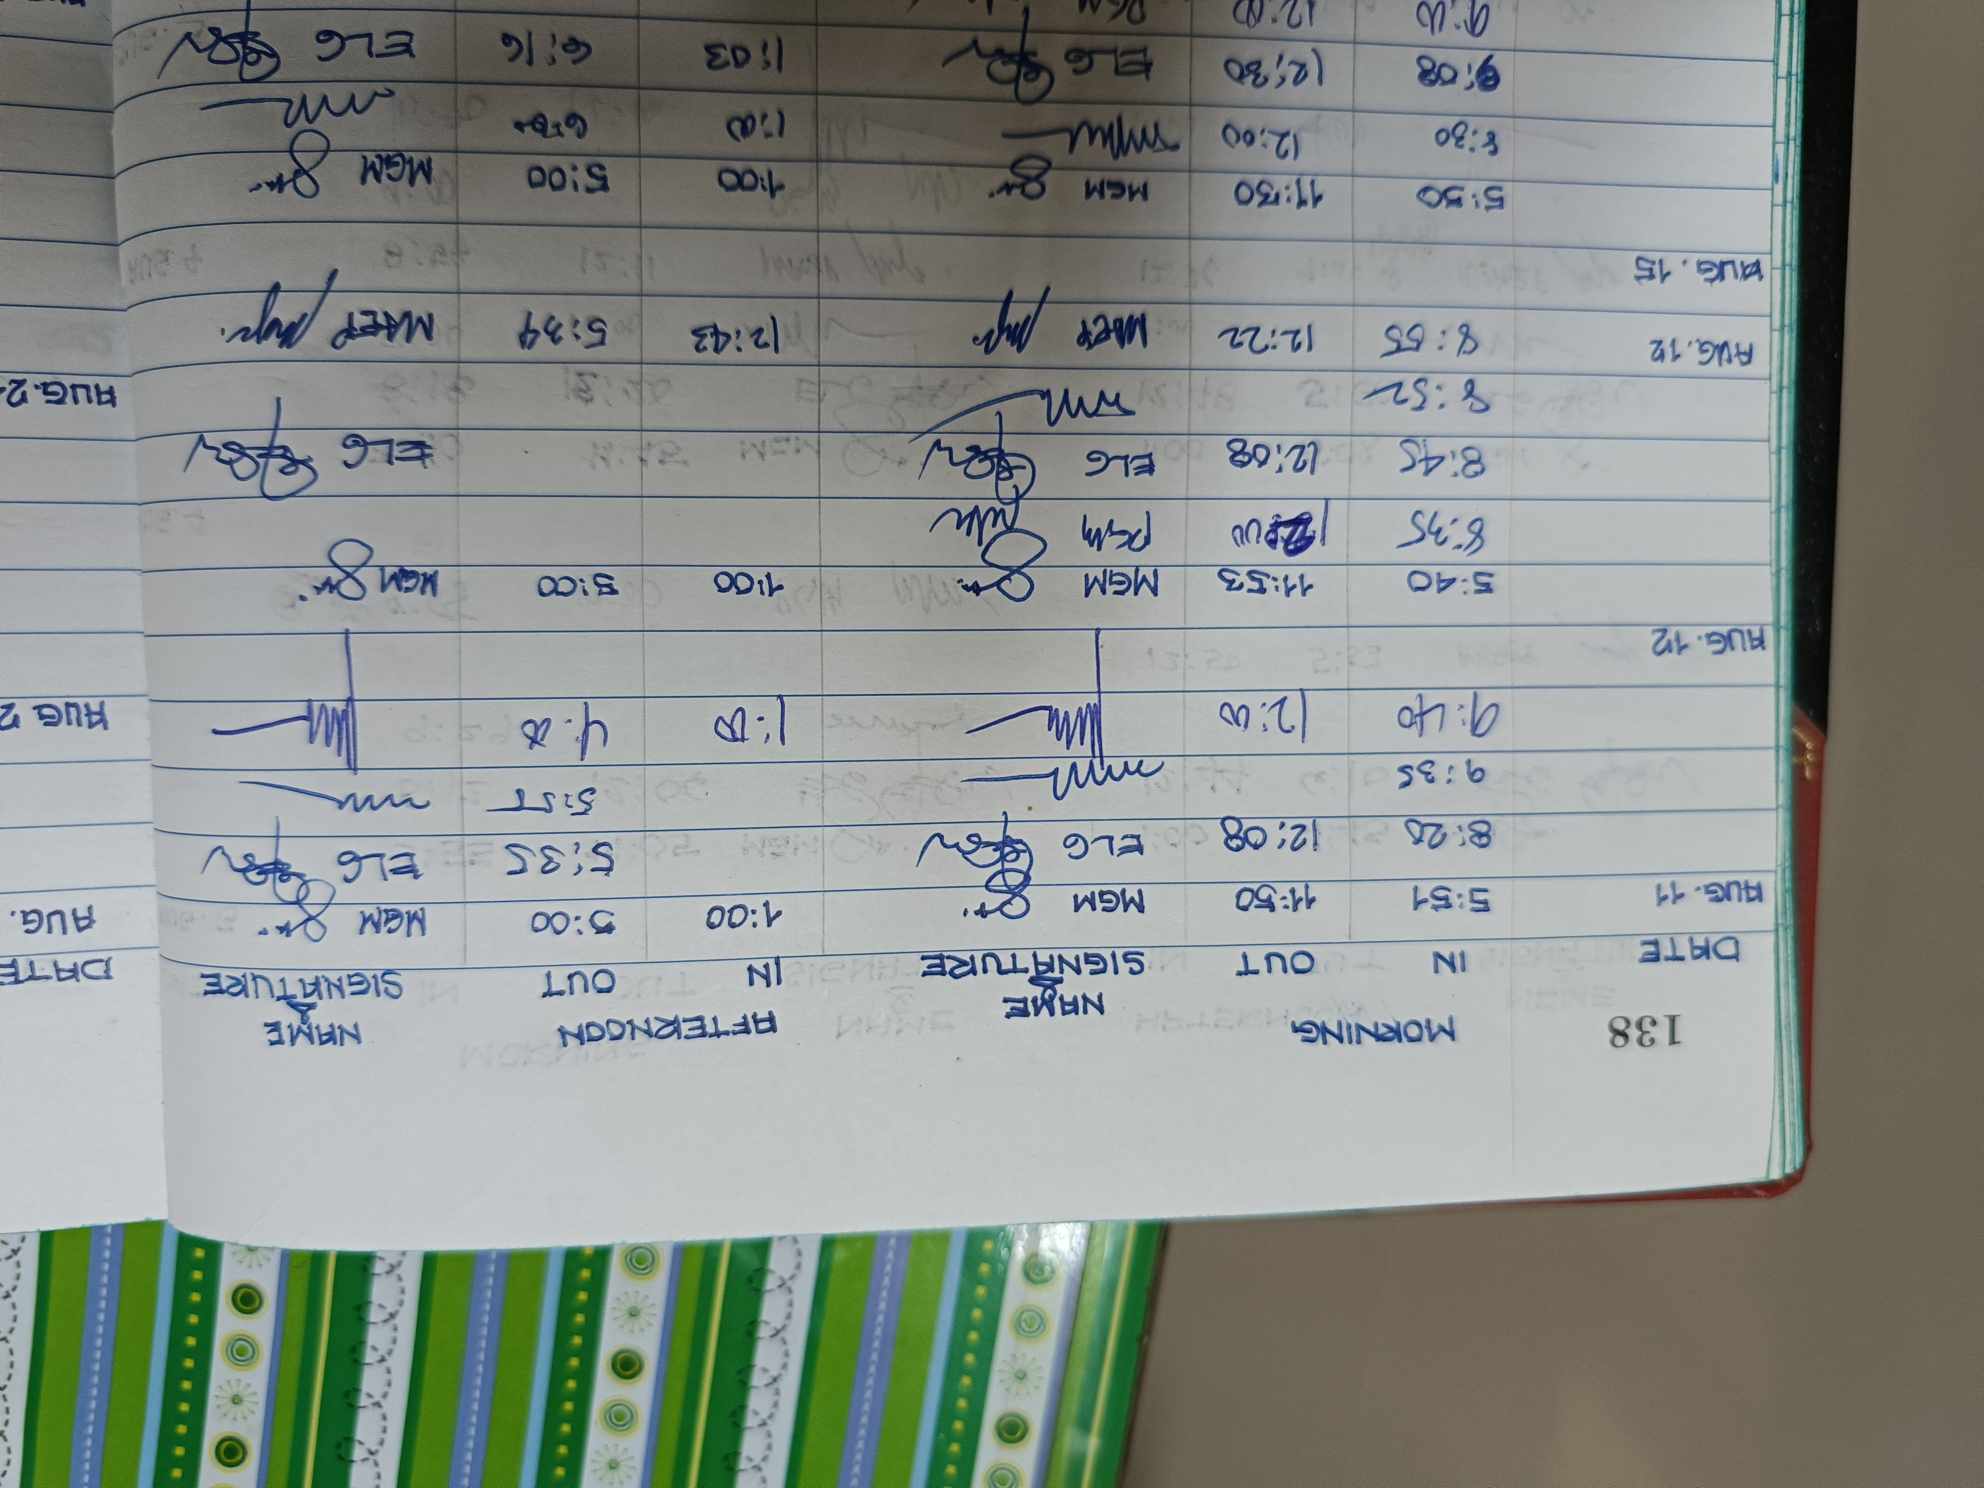 138 MORNING NAME AFTERNOON NAME
DATE IN OUT & SIGNATURE IN OUT & SIGNATURE DATE
AUG. 11 5:51 11:50 MGM 1:00 5:00 MGM AUG.
8:20 12:08 ELG 5:35 ELG
9:35 5:55
9:40 12:00 1:00 4:00 AUG 2
AUG. 12
5:40 11:53 MGM 1:00 5:00 MGM
8:35 PGM
8:45 12:08 ELG ELG
8:52 AUG. 2
AUG. 12 8:55 12:22 MAEP 12:43 5:34 MAEP
AUG. 15
5:50 11:30 MGM 1:00 5:00 MGM
8:30 12:00 1:00
9:08 12:30 ELG 1:03 6:16 ELG
9:00 12:00 PGM